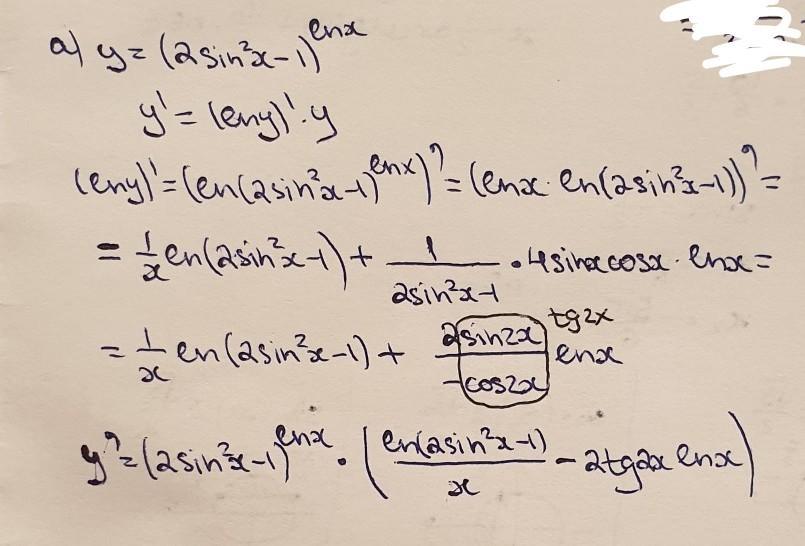 a) y = (2sin²x-1)^lnx
y' = (lny)'·y
(lny)' = (ln(2sin²x-1)^lnx)' = (lnx· ln(2sin²x-1))' =
= 1/x ln(2sin²x-1) + 1/(2sin²x-1) · 4sinxcosx · lnx =
= 1/x ln(2sin²x-1) + 2sin2x/-cos2x lnx tg2x
y' = (2sin²x-1)^lnx · (ln(2sin²x-1)/x - 2tg2x lnx)